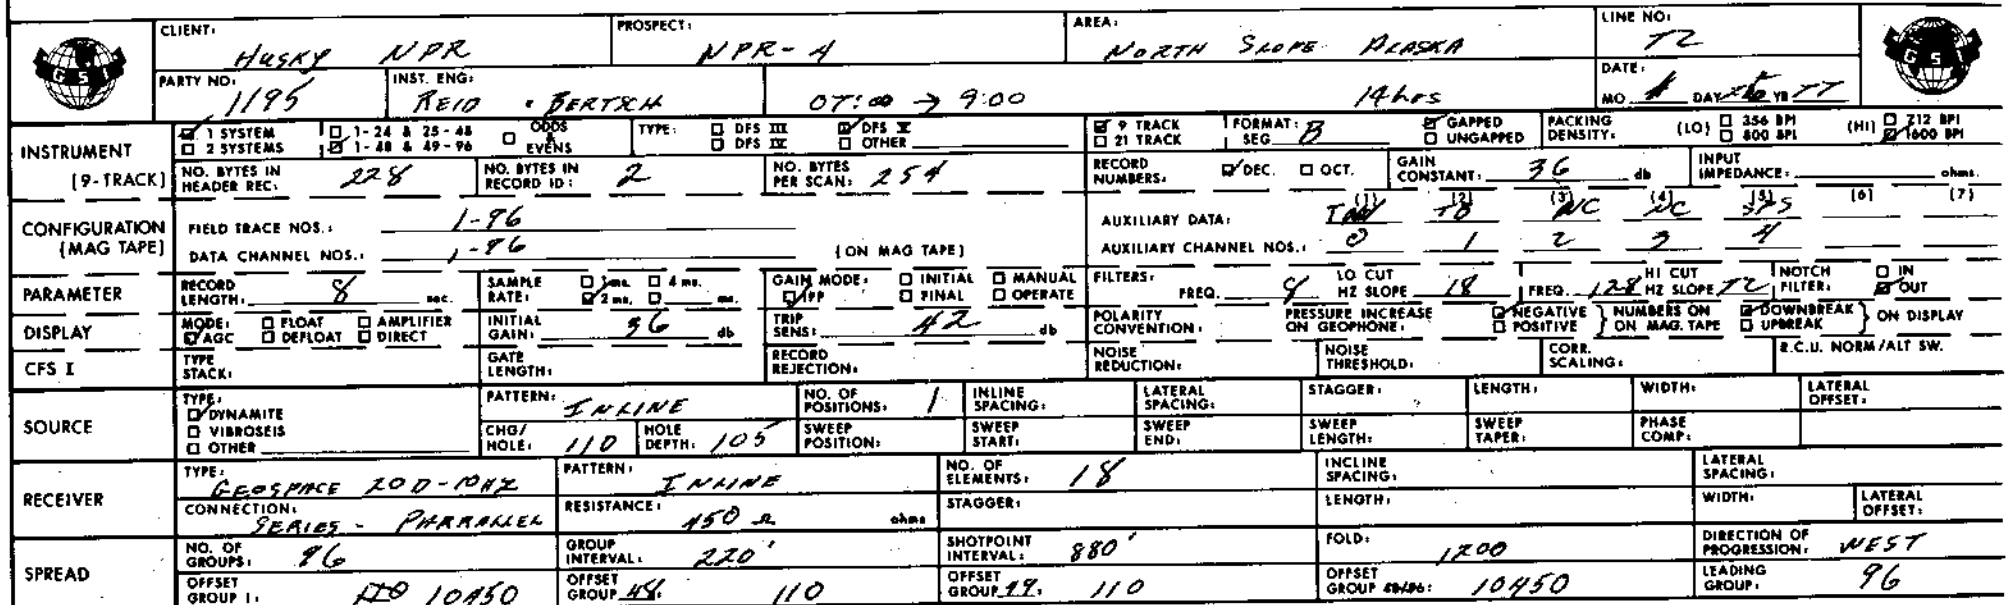 CLIENT: HUSKY NPR PROSPECT: NPR-4 AREA: NORTH SLOPE ALASKA LINE NO: T2
GSI GSI
PARTY NO: 1195 INST. ENG: REID • BERTSCH 07:00 → 9:00 14 hrs DATE: MO DAY YR 77
INSTRUMENT [9-TRACK]
☑ 1 SYSTEM ☐ 1-24 & 25-48 ☐ ODDS & EVENS TYPE: ☐ DFS III ☑ DFS V ☑ 9 TRACK FORMAT: SEG B ☑ GAPPED PACKING DENSITY: (LO) ☐ 356 BPI (HI) ☐ 712 BPI
☐ 2 SYSTEMS ☑ 1-48 & 49-96 ☐ DFS IV ☐ OTHER ☐ 21 TRACK ☐ UNGAPPED ☐ 800 BPI ☑ 1600 BPI
NO. BYTES IN HEADER REC: 228 NO. BYTES IN RECORD ID: 2 NO. BYTES PER SCAN: 254 RECORD NUMBERS: ☑ DEC. ☐ OCT. GAIN CONSTANT: 36 db INPUT IMPEDANCE: ohms.
CONFIGURATION [MAG TAPE]
(1) (2) (3) (4) (5) (6) (7)
FIELD TRACE NOS.: 1-96 AUXILIARY DATA: TB NC NC
DATA CHANNEL NOS.: 1-96 [ON MAG TAPE] AUXILIARY CHANNEL NOS.: 0 1 2 3 4
PARAMETER RECORD LENGTH: 8 sec. SAMPLE RATE: ☐ 1 ms. ☐ 4 ms. ☑ 2 ms. ☐ ms. GAIN MODE: ☐ INITIAL ☐ MANUAL ☑ IFP ☐ FINAL ☐ OPERATE FILTERS: FREQ. 8 LO CUT HZ SLOPE 18 FREQ. 128 HI CUT HZ SLOPE 72 NOTCH FILTER: ☐ IN ☑ OUT
DISPLAY MODE: ☐ FLOAT ☐ AMPLIFIER ☑ AGC ☐ DEFLOAT ☐ DIRECT INITIAL GAIN: 36 db TRIP SENS: 42 db POLARITY CONVENTION: PRESSURE INCREASE ON GEOPHONE: ☑ NEGATIVE ☐ POSITIVE } NUMBERS ON ON MAG. TAPE ☑ DOWNBREAK ☐ UPBREAK } ON DISPLAY
CFS I TYPE STACK: GATE LENGTH: RECORD REJECTION: NOISE REDUCTION: NOISE THRESHOLD: CORR. SCALING: R.C.U. NORM/ALT SW.
SOURCE TYPE: ☑ DYNAMITE ☐ VIBROSEIS ☐ OTHER
PATTERN: INLINE NO. OF POSITIONS: 1 INLINE SPACING: LATERAL SPACING: STAGGER: LENGTH: WIDTH: LATERAL OFFSET:
CHG/HOLE: 110 HOLE DEPTH: 105 SWEEP POSITION: SWEEP START: SWEEP END: SWEEP LENGTH: SWEEP TAPER: PHASE COMP:
RECEIVER TYPE: GEOSPACE 20D-10HZ PATTERN: INLINE NO. OF ELEMENTS: 18 INCLINE SPACING: LATERAL SPACING:
CONNECTION: SERIES - PHARRALLEL RESISTANCE: 450 Ω ohms STAGGER: LENGTH: WIDTH: LATERAL OFFSET:
SPREAD NO. OF GROUPS: 96 GROUP INTERVAL: 220' SHOTPOINT INTERVAL: 880' FOLD: 1200 DIRECTION OF PROGRESSION: WEST
OFFSET GROUP 1: 10450 OFFSET GROUP 48: 110 OFFSET GROUP 49: 110 OFFSET GROUP 48/96: 10450 LEADING GROUP: 96